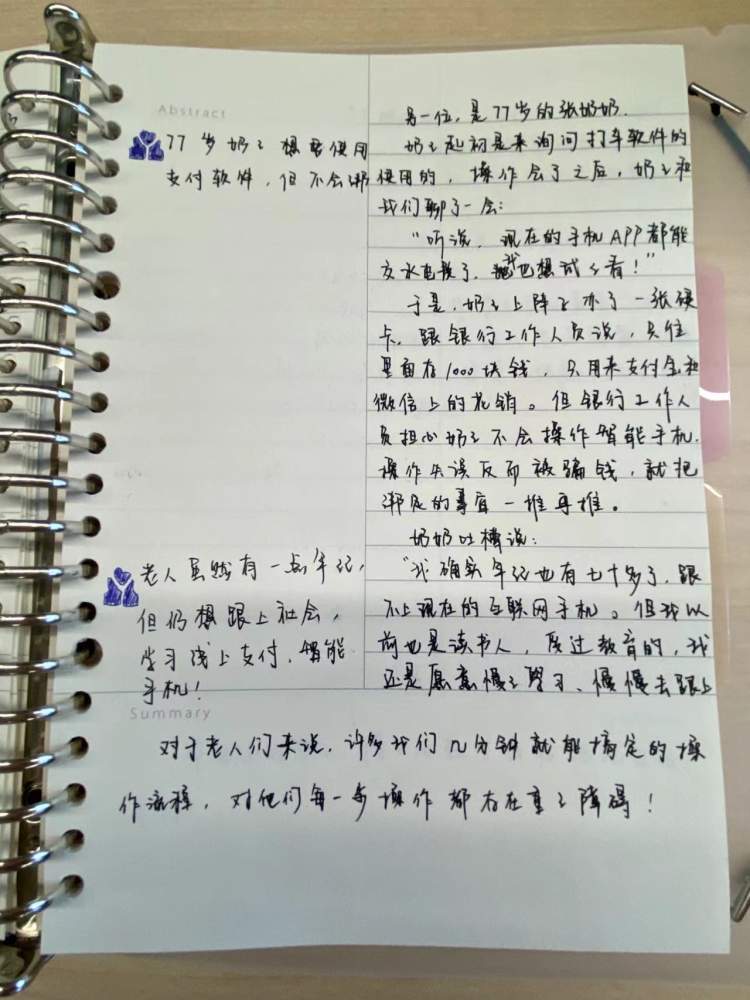 Abstract
77岁奶々想要使用
支付软件，但不会绑
老人虽然有一点年记，
但仍想跟上社会，
学习线上支付、智能
手机！
另一位，是77岁的张奶奶.
奶々起初是来询问打车软件的
使用的，操作会了之后，奶々和
我们聊了一会：
“听说，现在的手机APP都能
交水电费了，我也想试々看！”
于是，奶々上降々办了一张硬
卡，跟银行工作人员说，只往
里面存1000块钱，只用来支付宝和
微信上的花销。但银行工作人
员担心奶々不会操作智能手机.
操作失误反而被骗钱，就把
绑定的事宜一推再推。
奶奶吐槽说：
“我确实年记也有七十多了，跟
不上现在的互联网手机。但我以
前也是读书人，受过教育的，我
还是愿意慢々学习、慢慢去跟上
Summary
对于老人们来说，许多我们几分钟就能搞定的操
作流程，对他们每一步操作都存在重々障碍！